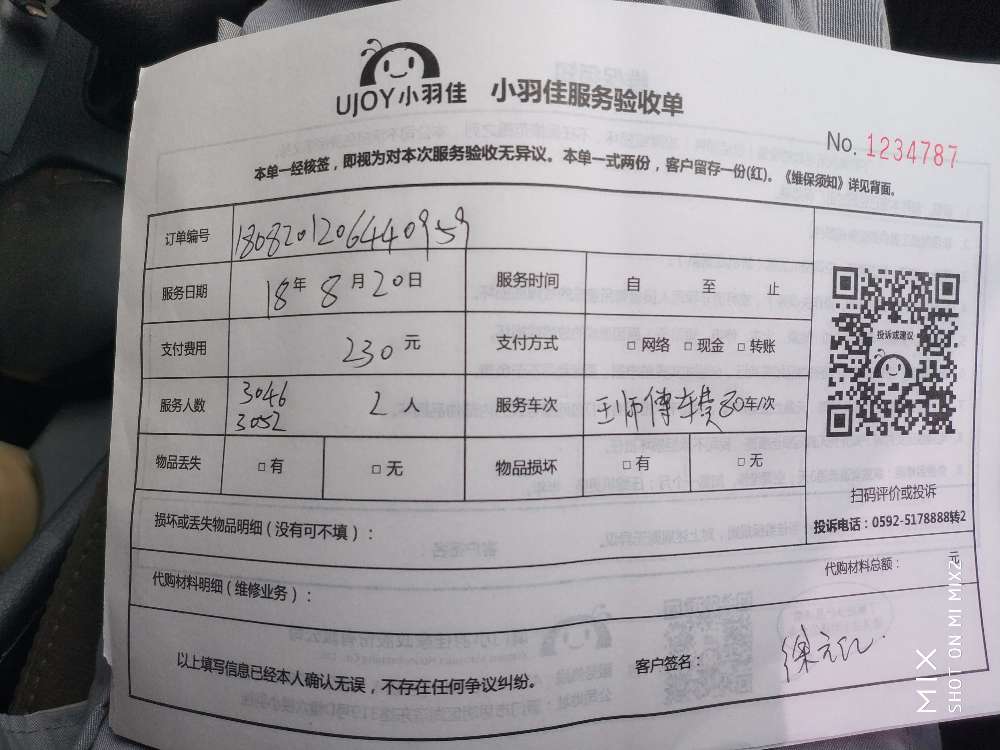 UJOY小羽佳 小羽佳服务验收单
No. 1234787
本单一经核签，即视为对本次服务验收无异议。本单一式两份，客户留存一份(红)。《维保须知》详见背面。
订单编号
服务日期 18年 8月20日 服务时间 自 至 止
支付费用 230元 支付方式 □ 网络 □ 现金 □ 转账
服务人数 3046 3052 2人 服务车次 王师傅 80车/次
物品丢失 □ 有 □ 无 物品损坏 □ 有 □ 无
投诉或建议
扫码评价或投诉
投诉电话：0592-5178888转2
损坏或丢失物品明细（没有可不填）：
代购材料明细（维修业务）：
代购材料总额： 元
以上填写信息已经本人确认无误，不存在任何争议纠纷。
客户签名：
MIX
SHOT ON MI MIX2